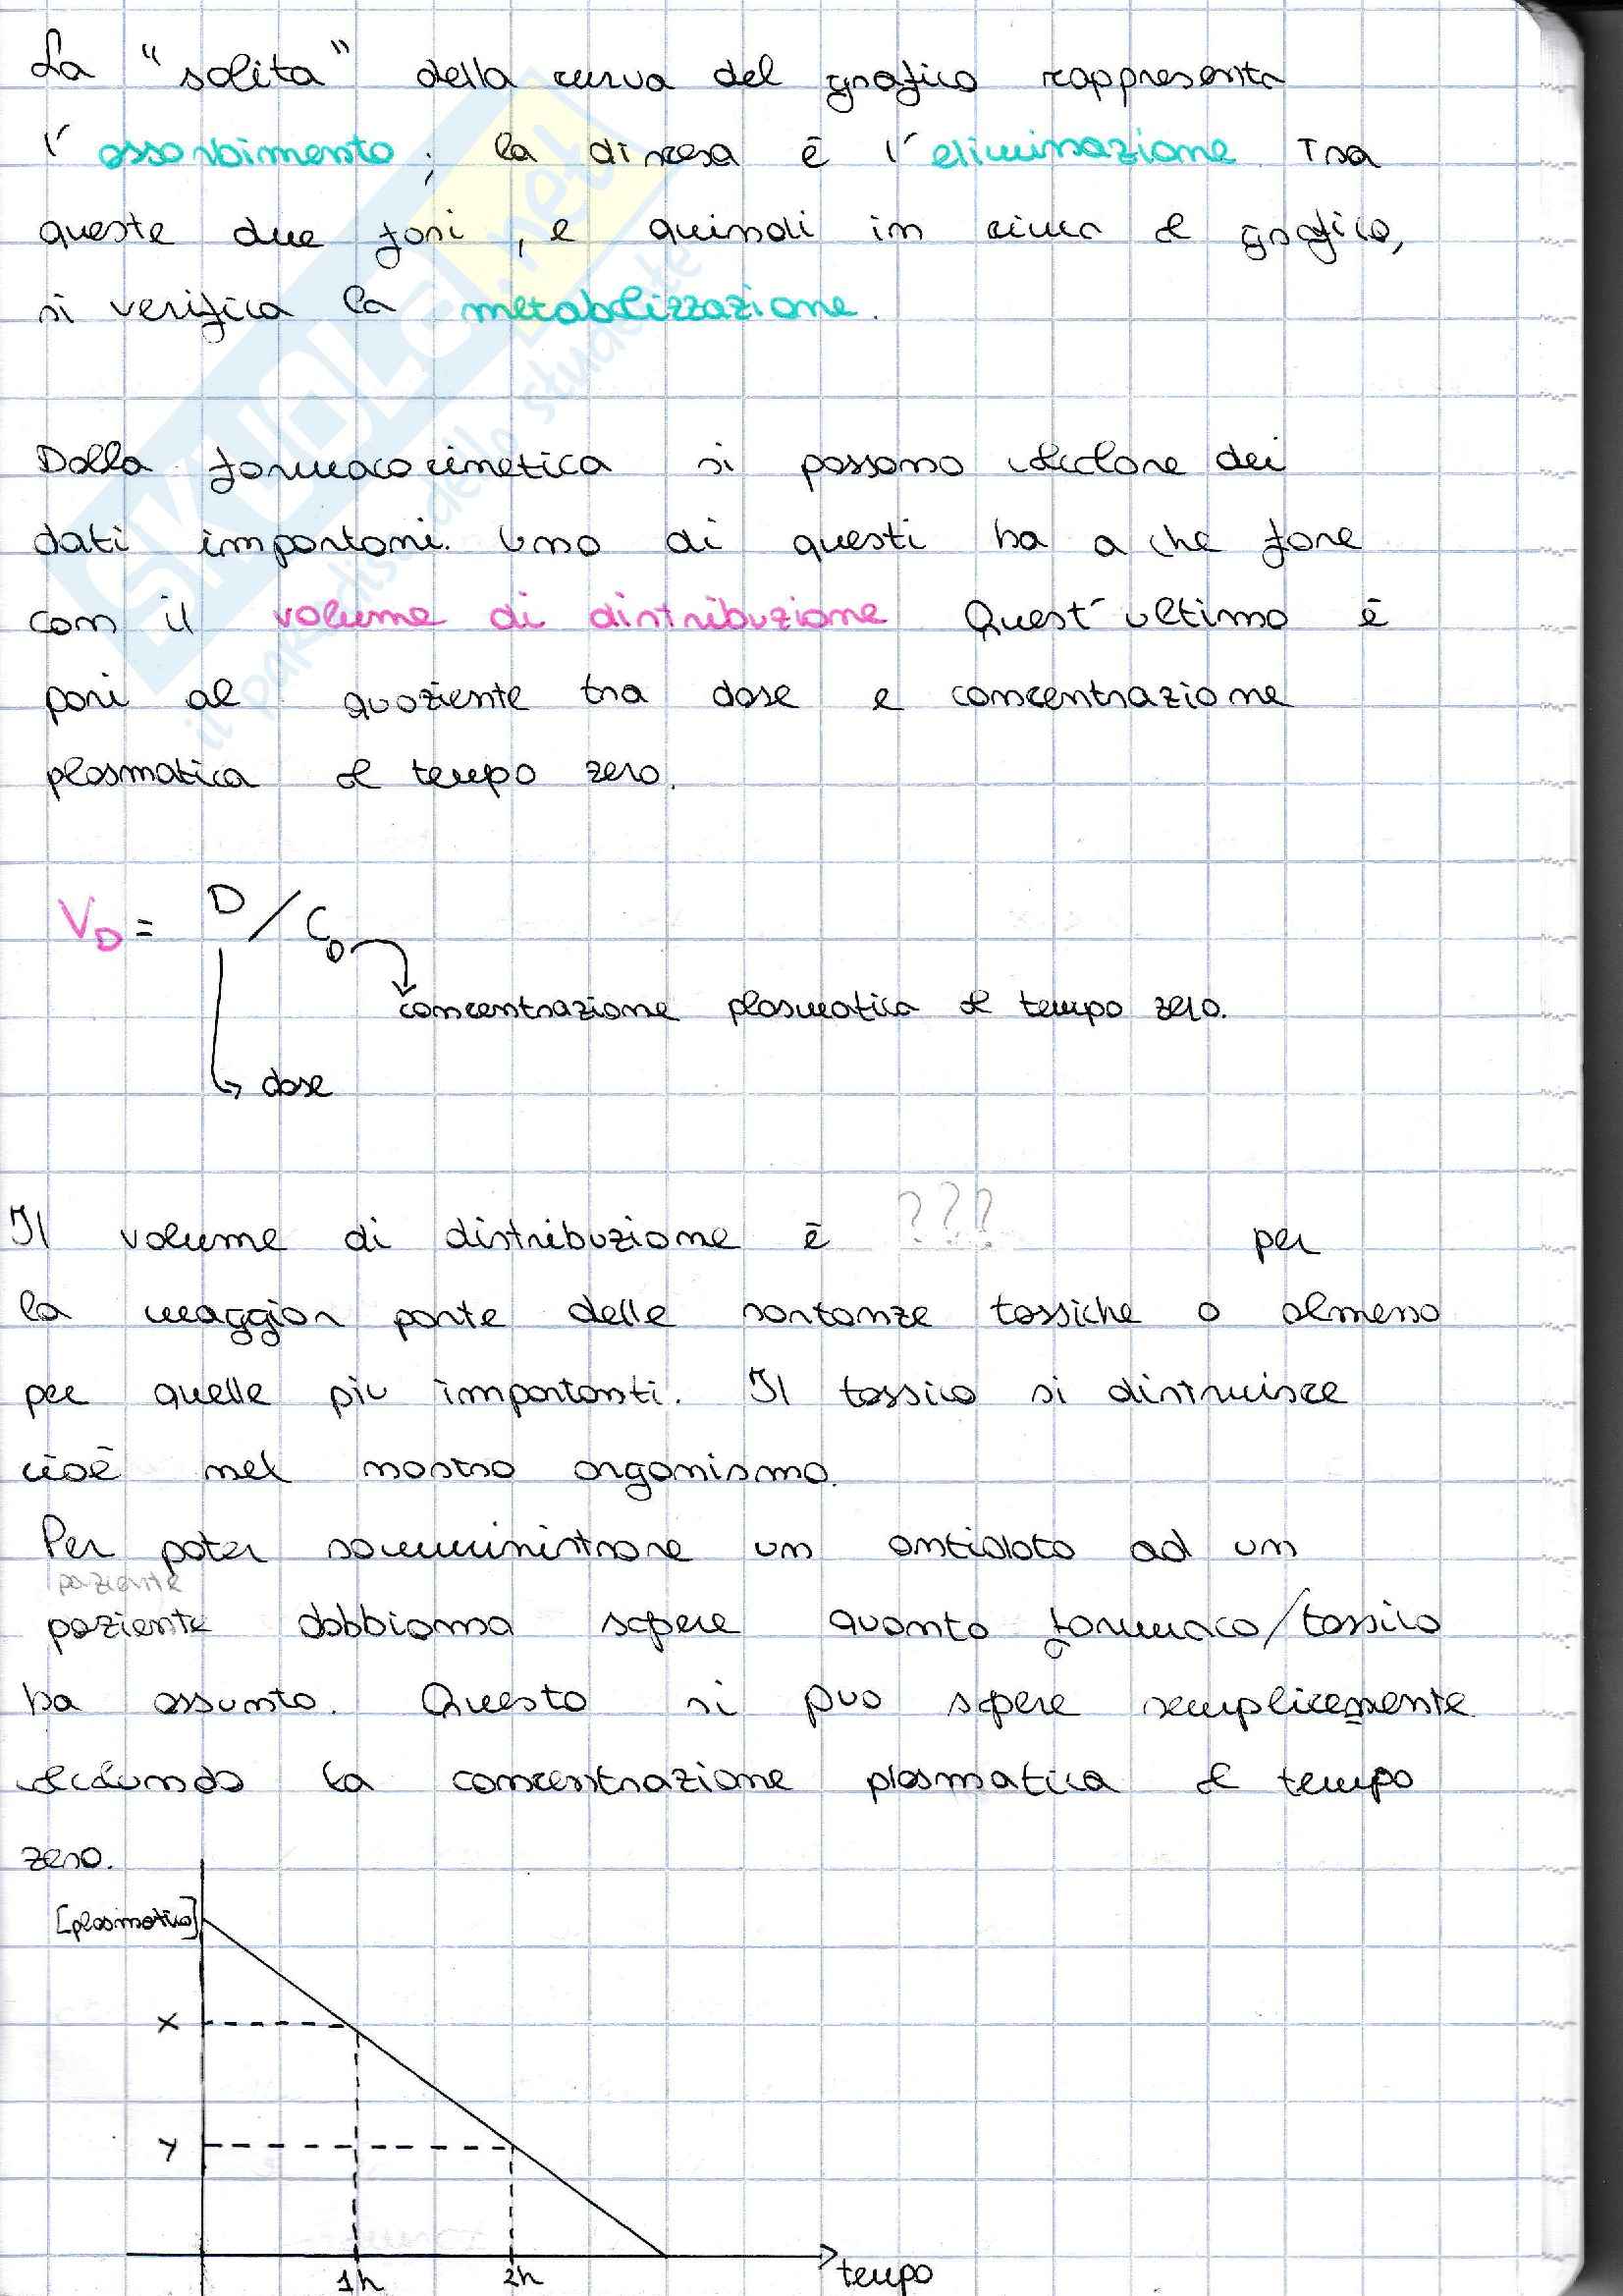 La "salita" della curva del grafico rappresenta
l'assorbimento; la discesa è l'eliminazione. Tra
queste due fasi, e quindi in cima al grafico,
si verifica la metabolizzazione.
Dalla farmacocinetica si possono calcolare dei
dati importani. Uno di questi ha a che fare
con il volume di distribuzione Quest'ultimo è
pari al quoziente tra dose e concentrazione
plasmatica al tempo zero.
VD = D / C0
concentrazione plasmatica al tempo zero.
dose
Il volume di distribuzione è ??? per
la maggior parte delle sostanze tossiche o almeno
per quelle più importanti. Il tossico si distruisce
cioè nel nostro organismo.
Per poter somministrare un antidoto ad un
paziente
paziente dobbiamo sapere quanto farmaco/tossico
ha assunto. Questo si può sapere semplicemente
calcolando la concentrazione plasmatica al tempo
zero.
[plasmatica]
X
Y
1h 2h tempo
SKUOLA.net
il paradiso dello studente